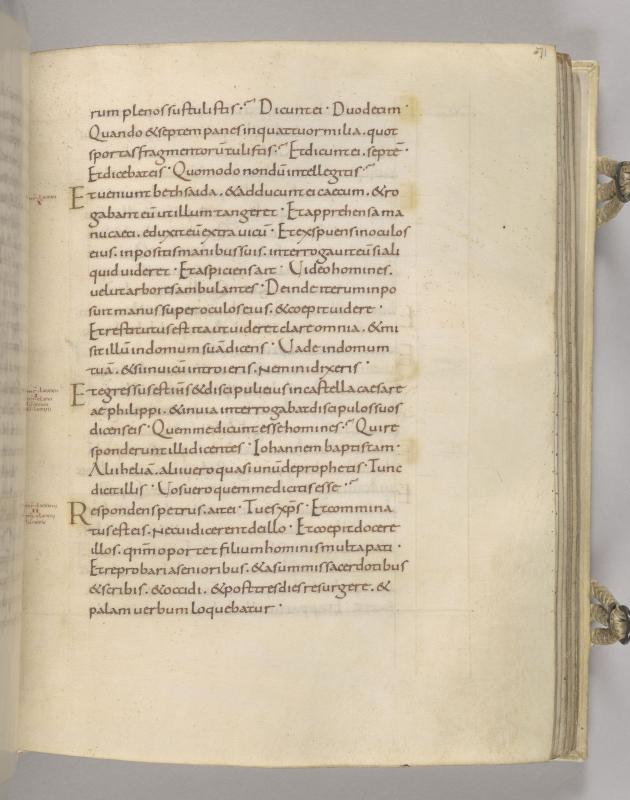 71
rum plenos sustulistis · Dicunt ei · Duodecim ·
Quando & septem panes in quattuor milia . quot
sportas fragmentorū tulistis · Et dicunt ei . septē ·
Et dicebat eis · Quomodo nondū intellegitis
Et ueniunt bethsaida . & adducunt ei caecum . & ro
gabant eū ut illum tangeret · Et apprehensa ma
nu caeci . eduxit eū extra uicū · Et exspuens in oculos
eius . inpositis manibus suis . interrogauit eū si ali
quid uideret · Et aspiciens ait · Uideo homines .
uelut arbores ambulantes · Deinde iterum inpo
suit manus super oculos eius . & coepit uidere ·
Et restitutus est ita ut uideret clare omnia . & mi
sit illū in domum suā dicens · Uade in domum
tuā . & si in uicū introieris . nemini dixeris ·
Et egressus est ih̄s & discipuli eius in castella caesare
ae philippi . & in uia interrogabat discipulos suos
dicens eis · Quem me dicunt esse homines · Qui re
sponderunt illi dicentes · Iohannem baptistam ·
Alii heliā . alii uero quasi unū de prophetis · Tunc
dicit illis · Uos uero quem me dicitis esse ·
Respondens petrus . ait ei · Tu es xp̄s · Et commina
tus est eis . ne cui dicerent de illo · Et coepit docere
illos . qnm̄ oportet filium hominis multa pati ·
Et reprobari a senioribus . & a summis sacerdotibus
& scribis . & occidi . & post tres dies resurgere . &
palam uerbum loquebatur ·